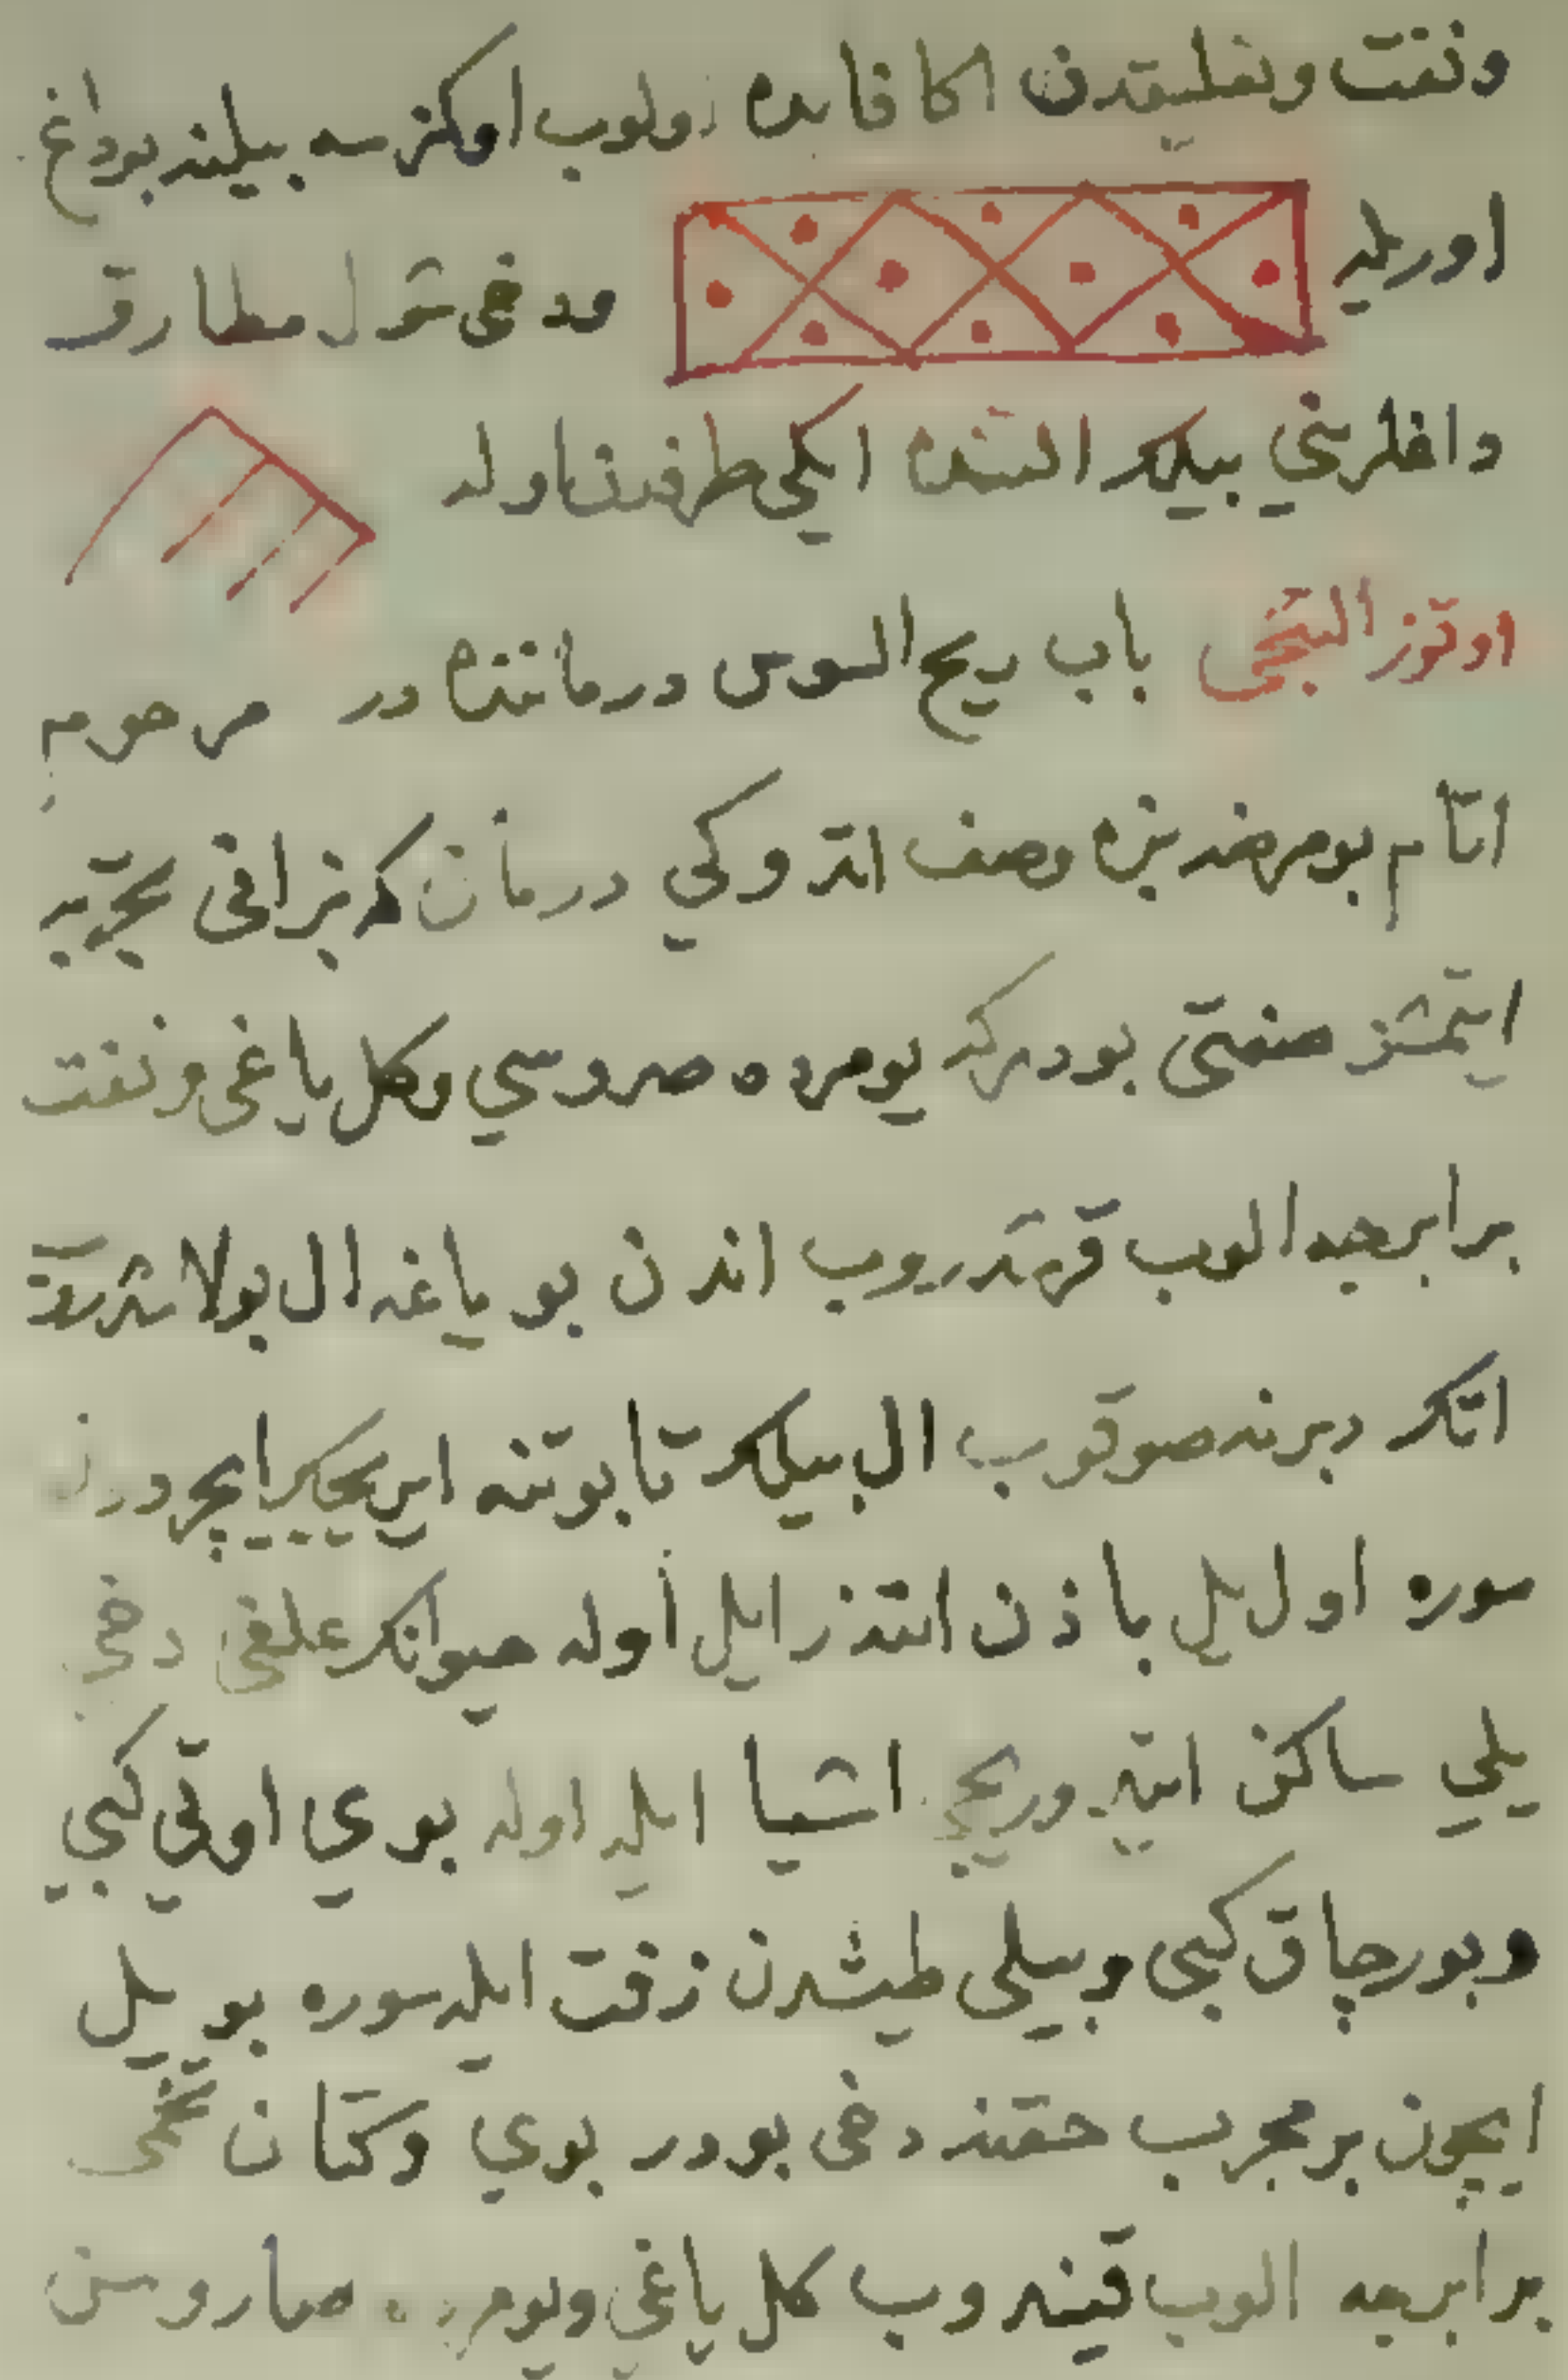 ونفت وتعليقدن اكا فايده اولوب اوكرسه بيلنه بوداغ
اوريلر ودخی شول مطارق
داغلريني بيلكر التنده ايكي طرفندن اولد
اوتوز التنجی باب ريح السوس درماننده در مرحوم
اتام بو مرضه بزه وصف اتدوكي درمان كه بز انی تجربه
ايتمشز صفتی بودركه يومرده صروسي وكل ياغی ونفت
برابرجه الوب قرشدروب اندن بو ياغه ال بولاشدره
اتك دبرنه صوقوب ال بيلكر تا بوتنه ايريجكز ايچرودن
سوره اول يل باذن الله زايل اوله حيوانك علفی دخی
يلي ساكن ايدر وريحی اشيا ايله اوله بوی اوتی كبي
وبورچاق كبی وبيلی طيشدن زفت ايله سوره بو يل
ايچون بر مجرب حقنه دخی بودر بوي وكتان تخمی
برابرجه الوب قينه دوب كل ياغی ويومرده صاروسن